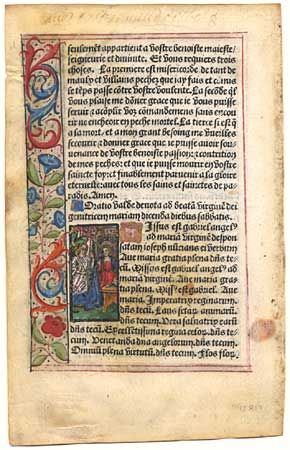 seulemēt appartient a vostre benoiste maieste
seigneurie et diuinite. Et vous requiers trois
choses. La premiere est misericorde de tant de
maulx et villains pechez que iay fais et cōmis
le tēps passe cōtre vostre voulente. La secōde qͥl
vous plaise me dōner grace que ie vous puisse
seruir et acōplir voz cōmandemens sans encou
rir ne encheoir en peche mortel. La tierce si est q̄
a sa mort et a mon grant besoing me vueillez
secourir et donner grace que ie puisse auoir sou-
uenance de vostre benoiste passion et contrition
de mes pechez et que ie puisse mourir en vostre
saincte foy et finablement paruenir a la gloire
eternelle auec tous les sains et sainctes de pa-
radis. Amen.
Oratio valde deuota ad beatā virginē dei
genitricem mariam dicenda diebus sabbatis.
Missus est gabriel angelꝰ
ad mariā virginē despon
satam ioseph nūcians ei verbum
Aue maria gratia plena dn̄s te-
cū. Missus est gabriel angelꝰ ad
mariā virginē. Aue maria gra-
tia plena. Missꝰ est gabriel. Aue
maria. Imperatrix reginarum
dn̄s tecū. Laus sctārum animarū.
dn̄s tecum. Vera salutatrix earū
dn̄s tecū. Excellētissima regina celorū. dn̄s te-
cum. Veneranda dn̄a angelorum. dn̄s tecum.
Omniū plena virtutū. dn̄s tecum. Flos florū.